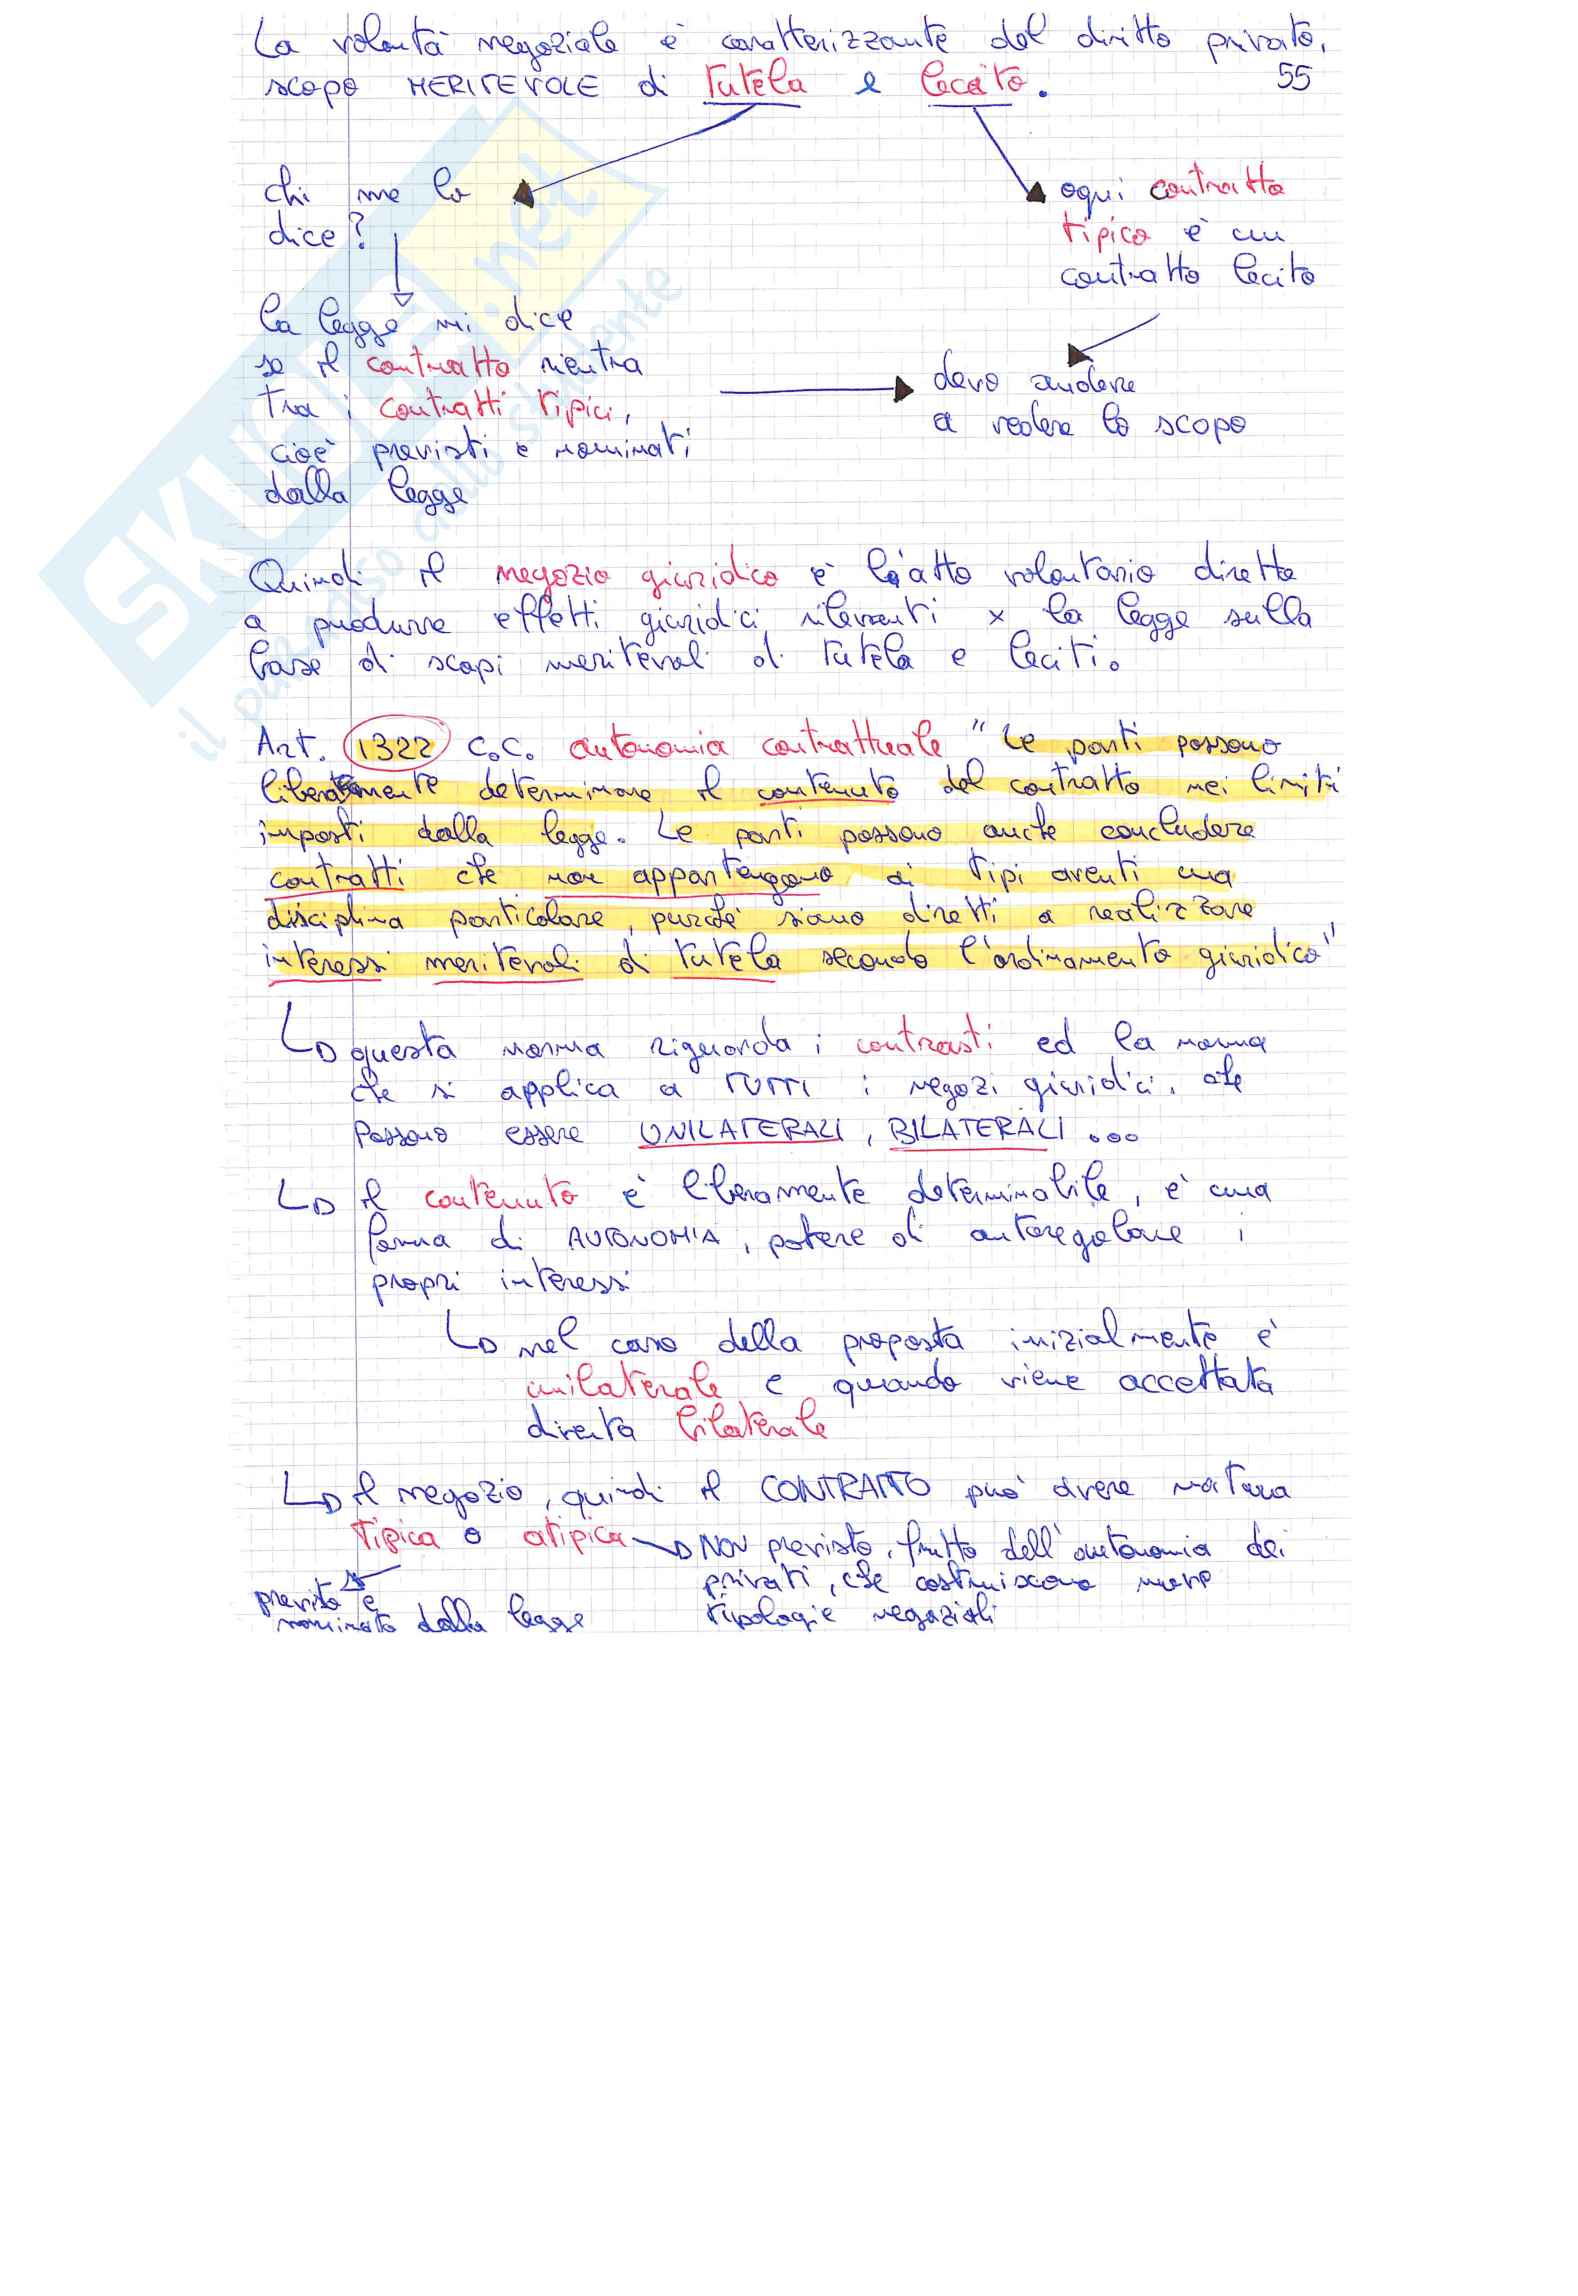 La volontà negoziale è caratterizzante del diritto privato,
scopo MERITEVOLE di tutela e lecito.
55
chi me lo
dice?
ogni contratto
tipico è un
contratto lecito
la legge mi dice
se il contratto rientra
tra i contratti tipici,
cioè previsti e nominati
dalla legge
devo andare
a vedere lo scopo
Quindi il negozio giuridico è l'atto volontario diretto
a produrre effetti giuridici rilevanti x la legge sulla
base di scopi meritevoli di tutela e leciti.
Art. 1322 c.c. autonomia contrattuale "Le parti possono
liberamente determinare il contenuto del contratto nei limiti
imposti dalla legge. Le parti possono anche concludere
contratti che non appartengono ai tipi aventi una
disciplina particolare, purché siano diretti a realizzare
interessi meritevoli di tutela secondo l'ordinamento giuridico"
questa norma riguarda i contrasti ed la norma
che si applica a TUTTI i negozi giuridici, che
possono essere UNILATERALI, BILATERALI...
il contenuto è liberamente determinabile, è una
forma di AUTONOMIA, potere di autoregolare i
propri interessi
nel caso della proposta inizialmente è
unilaterale e quando viene accettata
diventa bilaterale
il negozio, quindi il CONTRATTO può avere natura
tipica o atipica
NON previsto, frutto dell'autonomia dei
privati, che costruiscono nuove
tipologie negoziali
previsto e
nominato dalla legge
SKUOLA.net
il paradiso dello studente